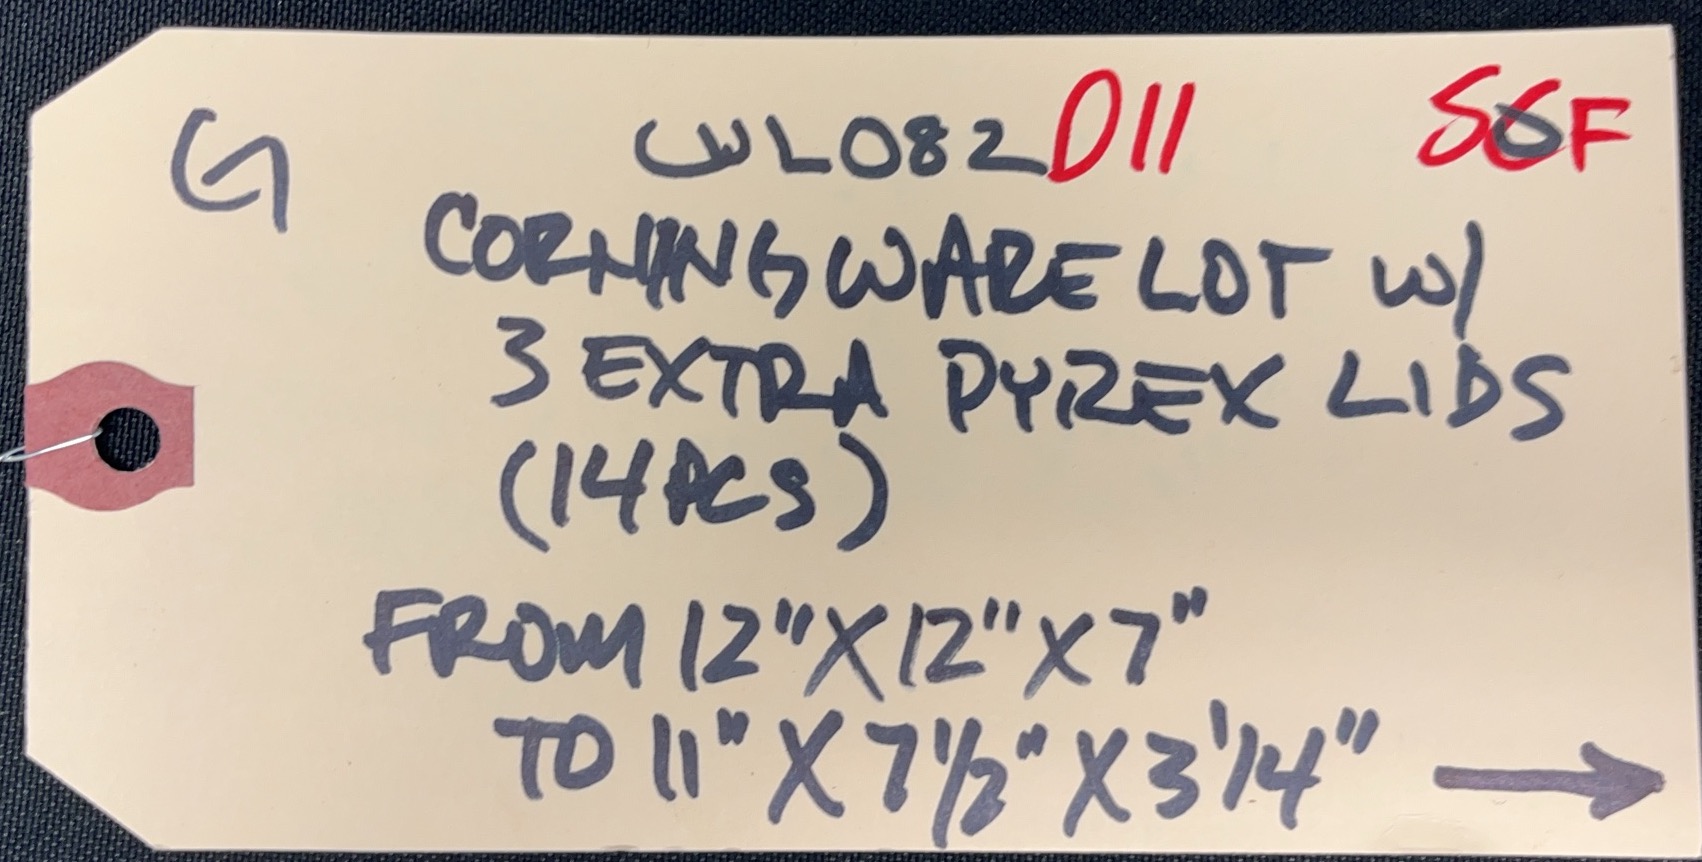 G
CWL082 D11 SGF
CORNINGWARE LOT W/
3 EXTRA PYREX LIDS
(14 PCS)
FROM 12" X 12" X 7"
TO 11" X 7 1/2" X 3 1/4" →